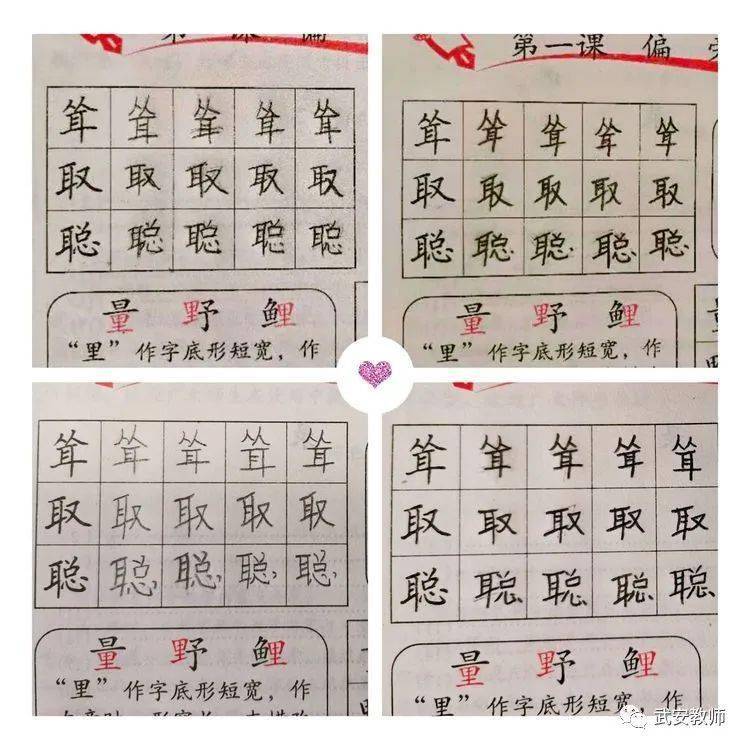 第一课 偏
耸 耸 耸 耸 耸
取 取 取 取 取
聪 聪 聪 聪 聪
量 野 鲤
“里”作字底形短宽，作
第一课 偏
耸 耸 耸 耸 耸
取 取 取 取 取
聪 聪 聪 聪 聪
量 野 鲤
“里”作字底形短宽，作
耸 耸 耸 耸 耸
取 取 取 取 取
聪 聪 聪 聪 聪
量 野 鲤
“里”作字底形短宽，作
耸 耸 耸 耸 耸
取 取 取 取 取
聪 聪 聪 聪 聪
量 野 鲤
“里”作字底形短宽，作
武安教师